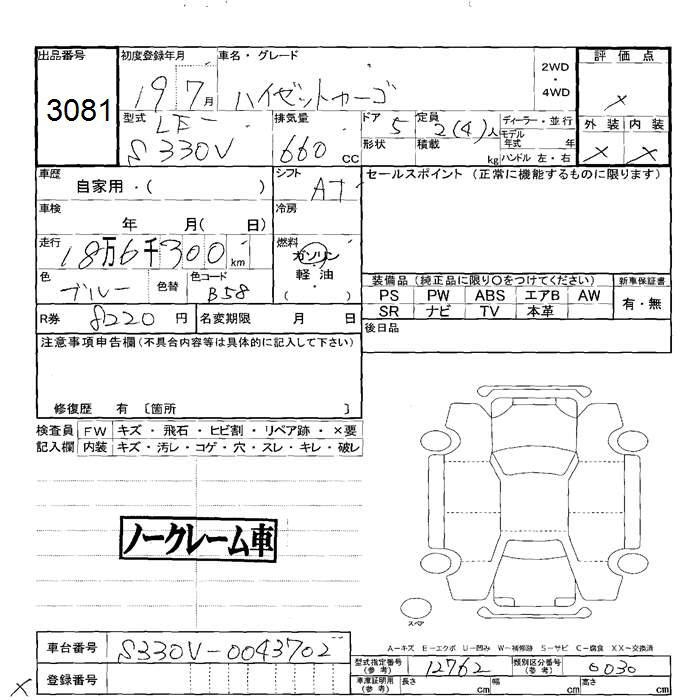 出品番号 初度登録年月 車名・グレード 2WD・4WD 評価点
3081 19 7月 ハイゼットカーゴ ×
型式 LE- 排気量 ドア 5 定員 2(4)人 ディーラー・並行 外装 内装
S330V 660 CC 形状 積載 kg モデル年式 年 ハンドル 左・右 × ×
車歴 自家用・( ) シフト AT セールスポイント (正常に機能するものに限ります)
車検 年 月( 日) 冷房
走行 18万6千300km 燃料 ガソリン・軽油・( )
色 ブルー 色替 色コード B58 装備品(純正品に限り○をつけてください) 新車保証書
PS PW ABS エアB AW 有・無
SR ナビ TV 本革
R券 8220円 名変期限 月 日 後日品
注意事項申告欄(不具合内容等は具体的に記入して下さい)
修復歴 有 〔箇所 〕
検査員 FW キズ・飛石・ヒビ割・リペア跡・×要
記入欄 内装 キズ・汚レ・コゲ・穴・スレ・キレ・破レ
ノークレーム車
スペア
A-キズ E-エクボ U-凹み W-補修跡 S-サビ C-腐食 XX-交換済
車台番号 S330V-0043702 型式指定番号(参考) 12762 類別区分番号(参考) 0030
× 登録番号 車庫証明用(参考) 長さ cm 幅 cm 高さ cm